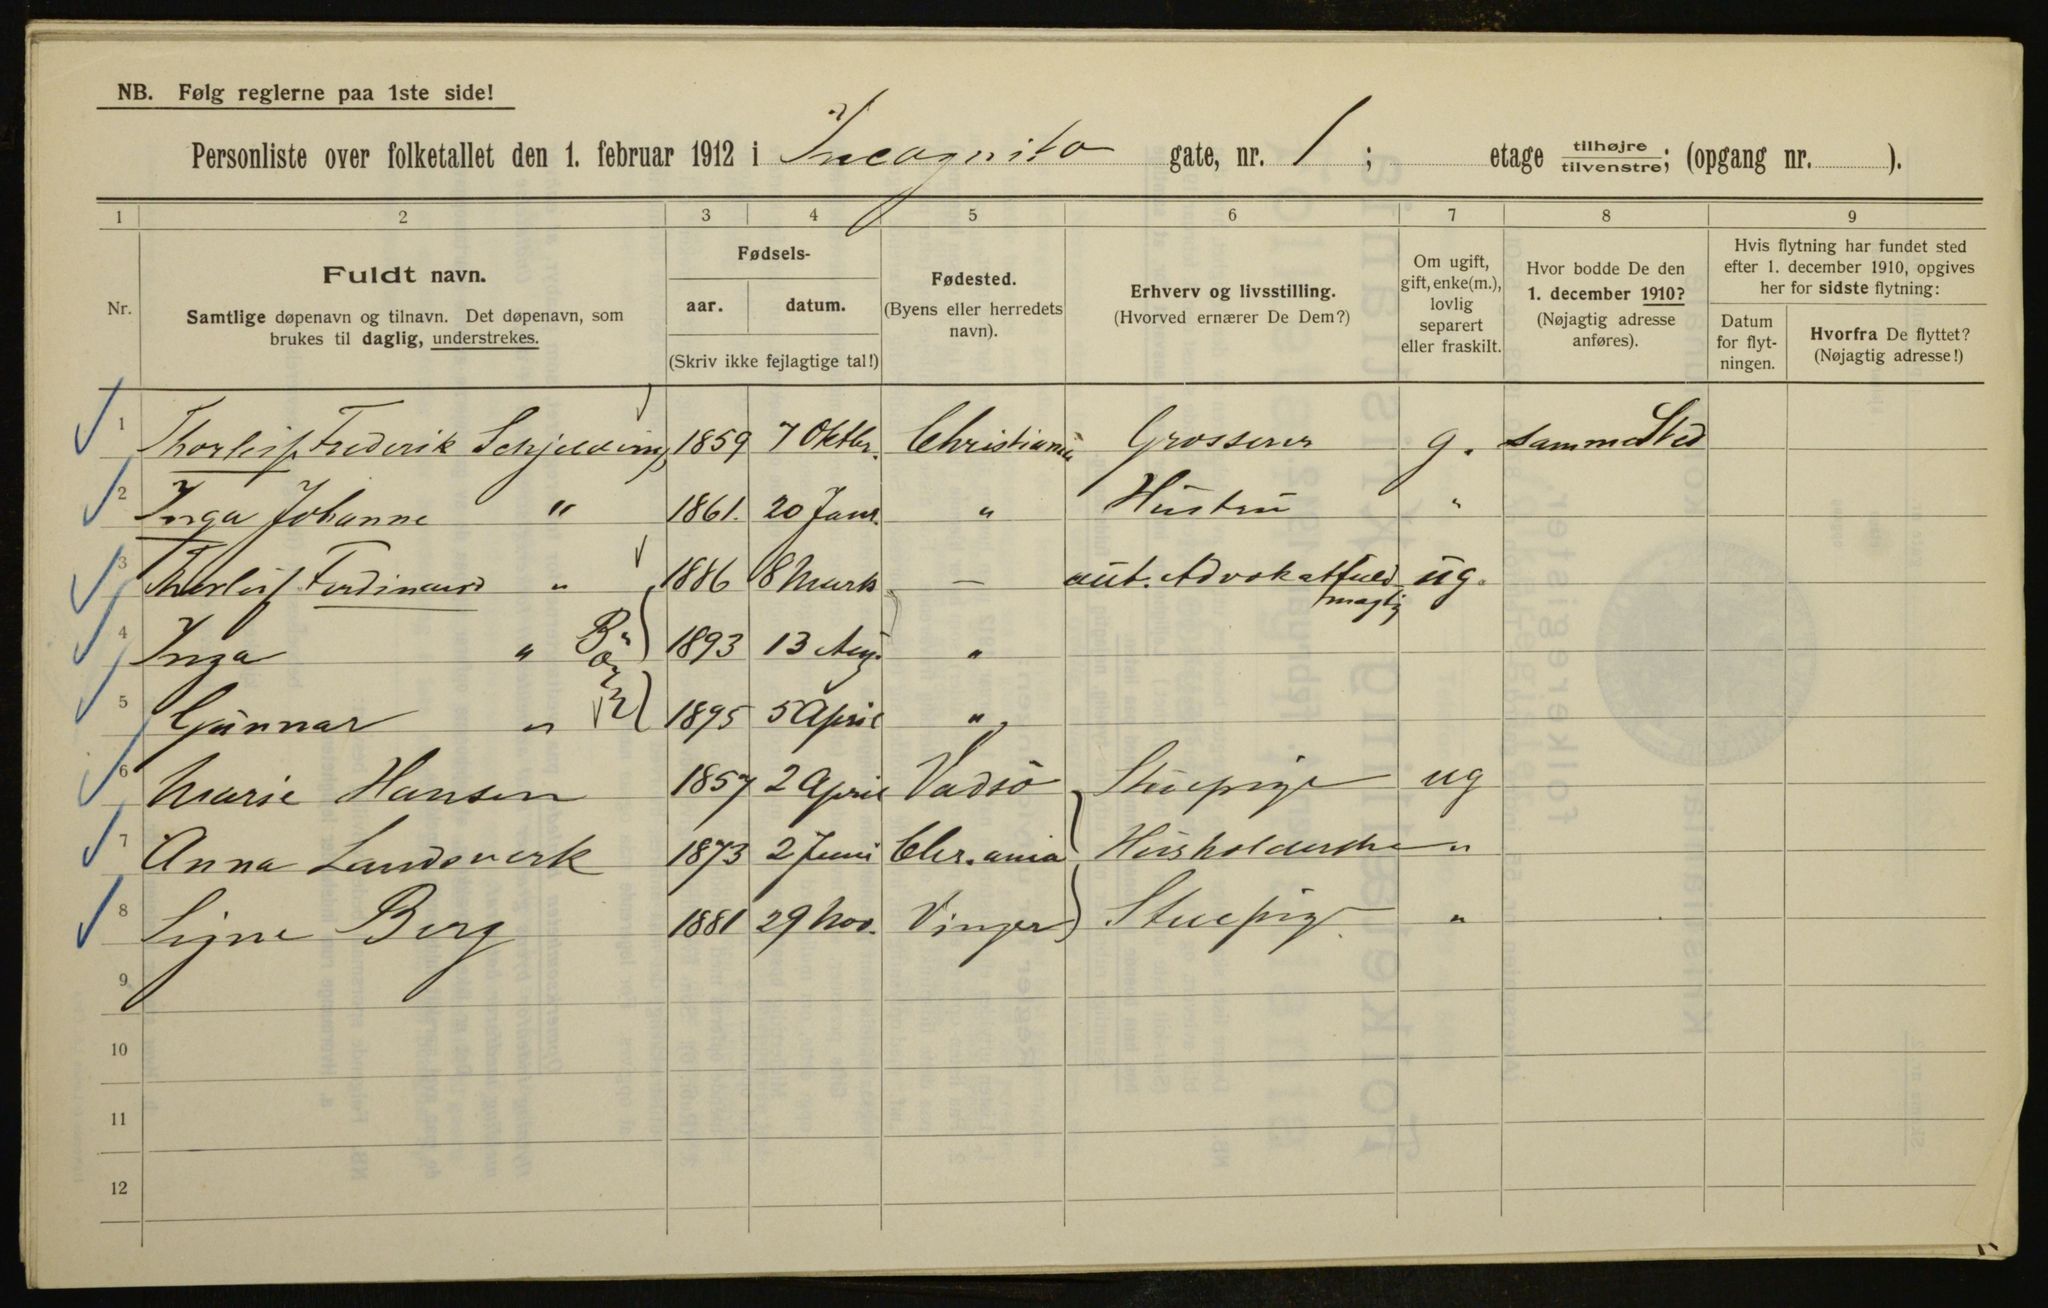 NB. Følg reglerne paa 1ste side!
Personliste over folketallet den 1. februar 1912 i Incognito gate, nr. 1; etage tilhøjre/tilvenstre; (opgang nr. ).
1 2 3 4 5 6 7 8 9
Nr.
Fuldt navn.
Samtlige døpenavn og tilnavn. Det døpenavn, som
brukes til daglig, understrekes.
Fødsels-
aar. datum.
(Skriv ikke fejlagtige tal!)
Fødested.
(Byens eller herredets
navn).
Erhverv og livsstilling.
(Hvorved ernærer De Dem?)
Om ugift,
gift, enke(m.),
lovlig
separert
eller fraskilt.
Hvor bodde De den
1. december 1910?
(Nøjagtig adresse
anføres).
Hvis flytning har fundet sted
efter 1. december 1910, opgives
her for sidste flytning:
Datum
for flyt-
ningen.
Hvorfra De flyttet?
(Nøjagtig adresse!)
1 Thorleif Frederik Schjelderup 1859 7 Oktbr. Christiania Grosserer g. samme Sted
2 Inga Johanne " 1861. 20 Janr. " Hustru "
3 Thorleif Ferdinand " 1886 8 Marts — aut. Advokatfuld
mægtig ug.
4 Inga " Börn 1893 13 Aug. "
5 Gunnar " 1895 5 April "
6 Marie Hansen 1857 2 April Vadsö Stuepige ug
7 Anna Landsverk 1873 2 Juni Chr.ania Husholderske "
8 Signe Berg 1881 29 Nov. Vinger Stuepige "
9
10
11
12